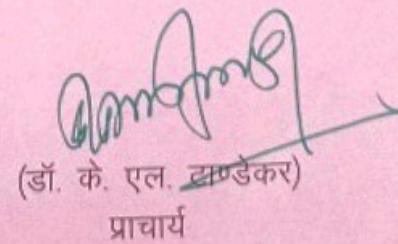 (डॉ. के. एल. टाण्डेकर)
प्राचार्य